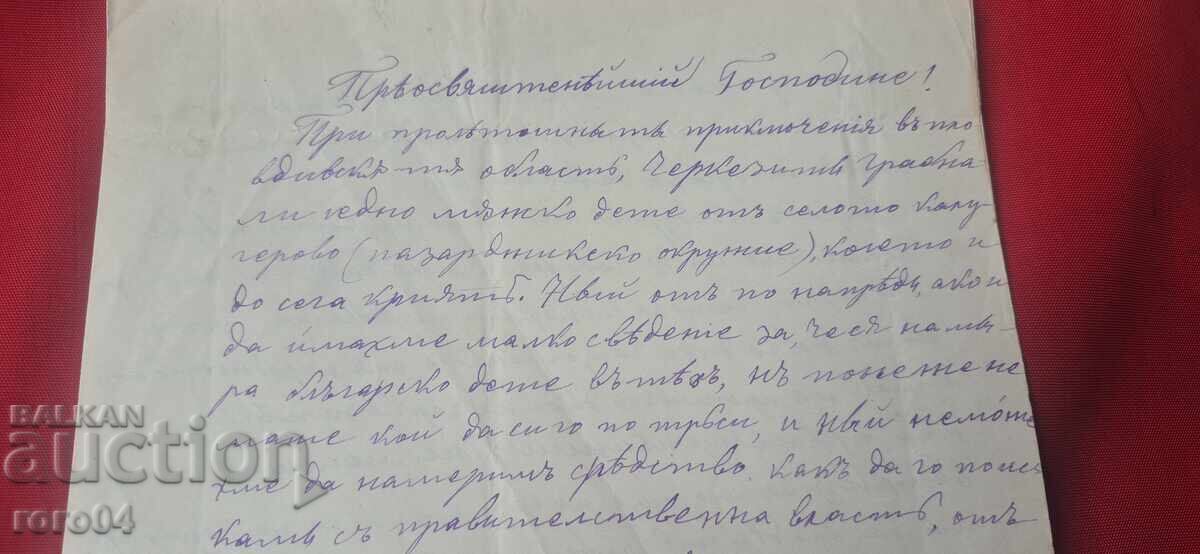 Прѣосвяштенѣйшій Господине!
При пролѣтошнытѣ приключенія въ пло
вдивскѫ-тѫ область, Черкезитѣ грабна-
ли едно мѫжко дете отъ селото калу
герово (пазарджикско окружие), което и
до сега криятъ. Ный отъ по напрѣдъ, ако и
да имахме малко свѣдение за, че ся нами-
ра българско дете въ тѣхъ, нъ понеже не
маше кой да си го потърси, и ный неможе
хме да намеримъ срѣдство какъ да го поис
каме съ правителственна власть, отъ
BALKAN
auction
roro04